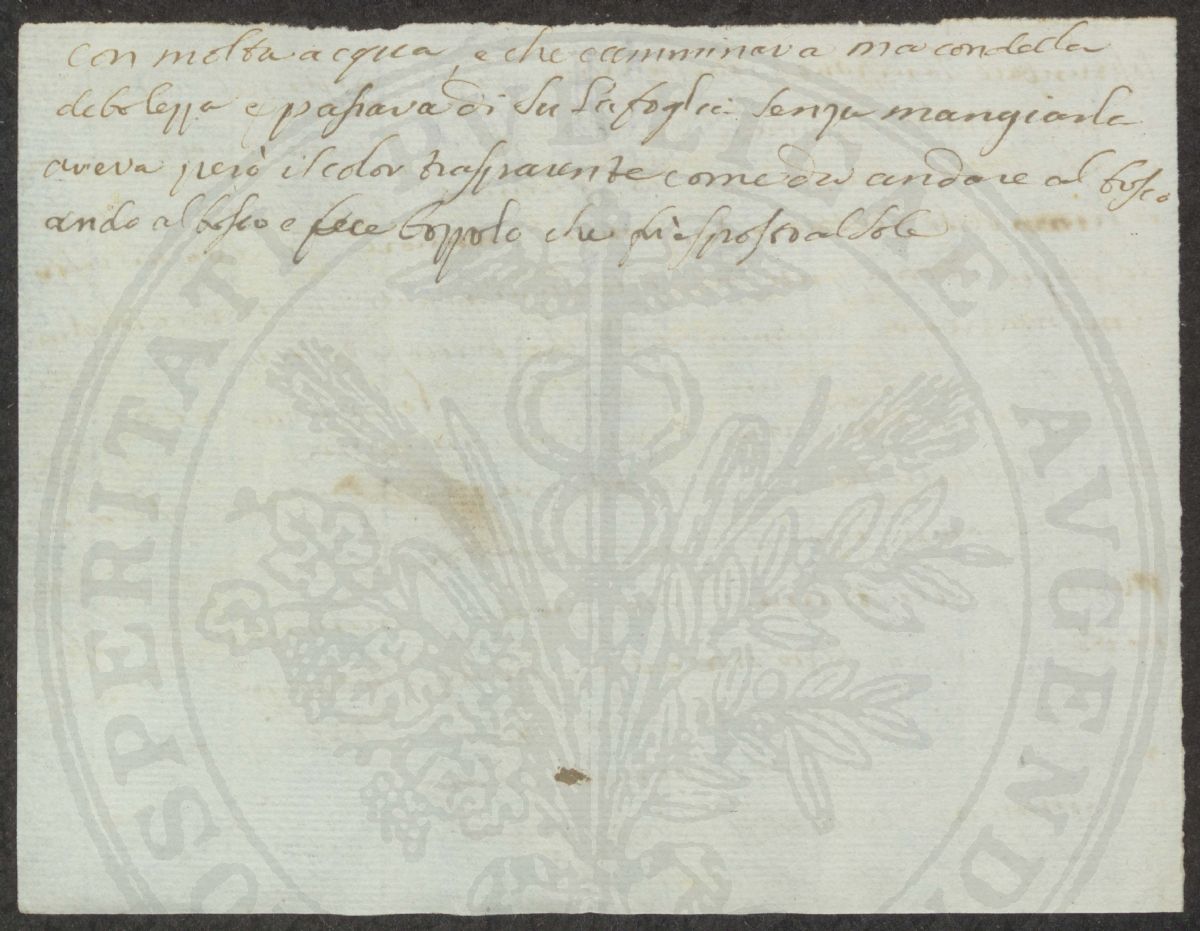 con molta acqua, e che camminava ma con della
debolezza e passava di su la foglia senza mangiarla
aveva però il color trasparente come da andare al bosco
andò al bosco e fece bozzolo che fù esposto al Sole
PROSPERITATI PVBLICAE AVGENDAE